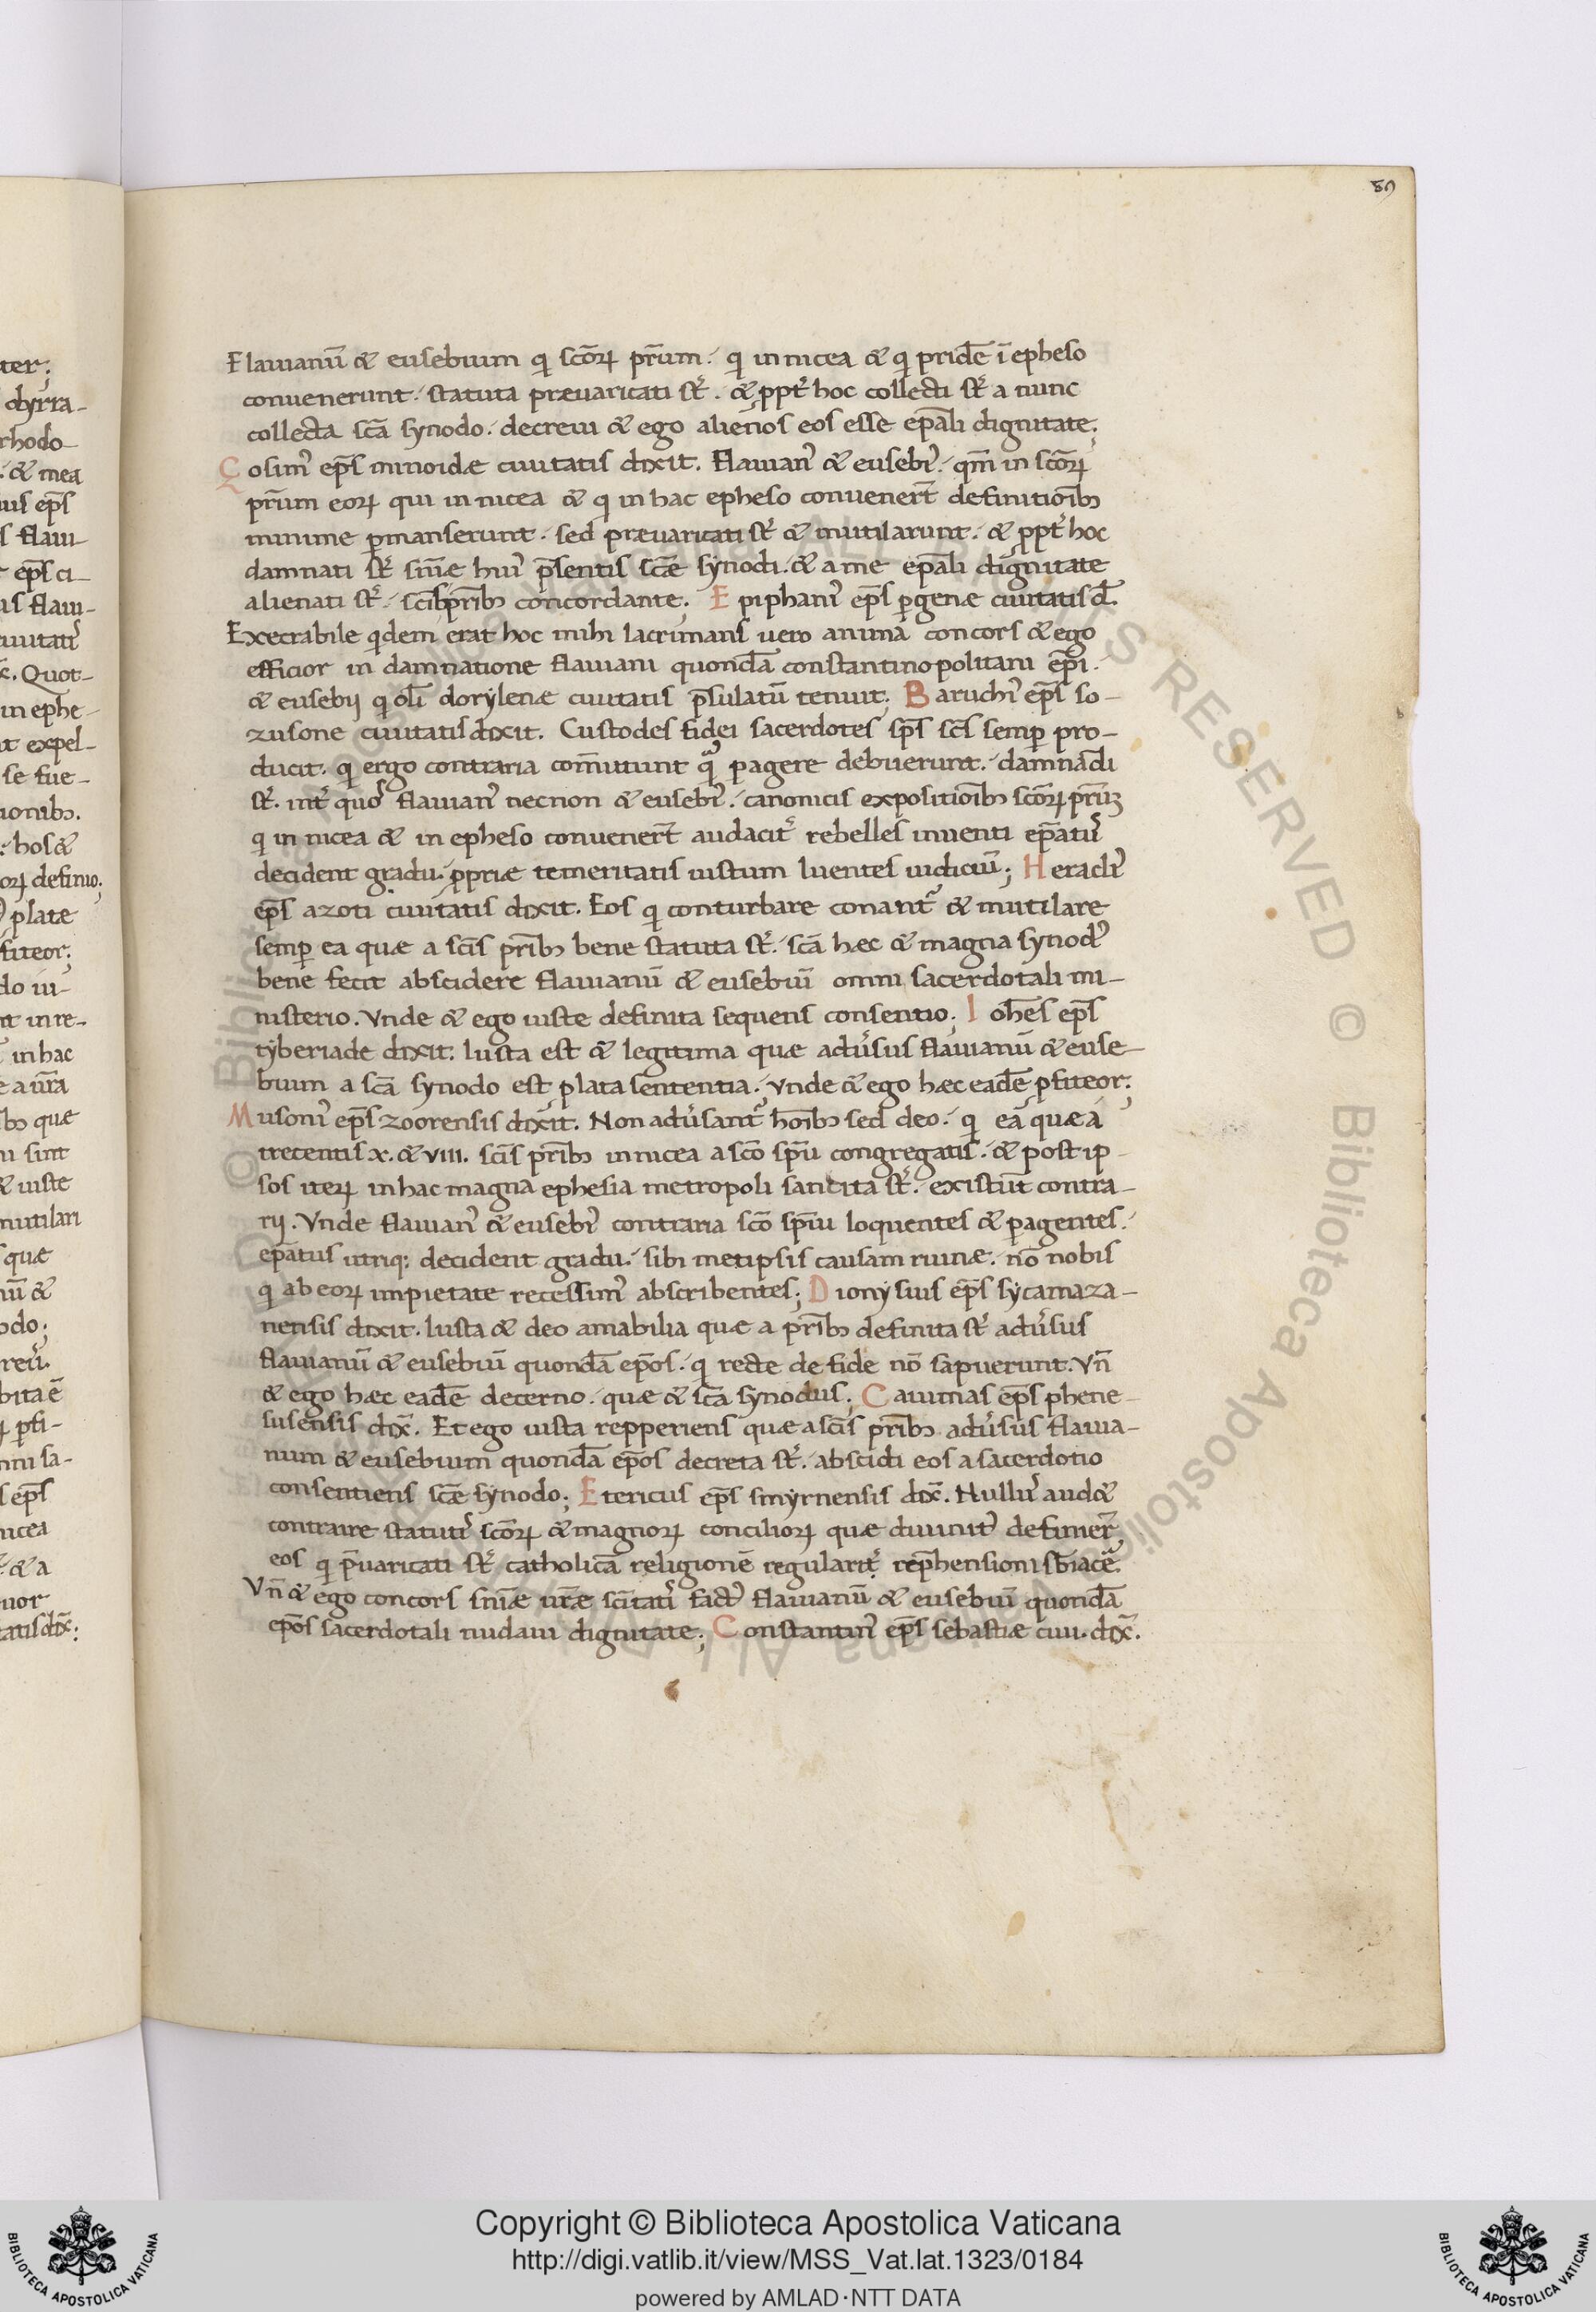 ter;
dyrra-
rhodo-
& mea
uis ep̄s
flaui-
ep̄s ci-
flaui-
ciuitati᾽
Quot-
in ephe-
expel-
se fue-
ionib;.
hos &
definio;
plate
fiteor;
do iu-
in re-
in hac
a ur̄a
quæ
sint
iuste
mutilari
quæ
&
odo;
bita ē
pfi-
sa-
ep̄s
nicea
& a
59
Flauianū & eusebium qi scōrꝝ pr̄um. qi in nicea & qi pridē ī epheso
conuenerunt. statuta præuaricati st̄. & ꝓpt̄ hoc collecti st̄ a nunc
collecta scā synodo. decreui & ego alienos eos esse ep̄ali dignitate;
Çosim᾽ ep̄s minoidæ ciuitatis dixit. Flauian᾽ & eusebi᾽. qm̄ in scōrꝝ
pr̄um eorꝝ qui in nicea & qi in hac epheso conuenert̄ definitiōib;
minime ꝑmanserunt. sed præuaricati st̄ & mutilarunt. & ꝓpt̄ hoc
damnati st̄ sn̄iæ hui᾽ p̄sentis scǣ synodi. & a me ep̄ali dignitate
alienati st̄. scīs pr̄ib; concordante. Epiphani᾽ ep̄s ꝑgenæ ciuitatis d̄.
Execrabile qidem erat hoc mihi lacrimans uero anima concors & ego
efficior in damnatione flauiani quondā constantinopolitani ep̄i.
& eusebij qi oli̅ dorylenæ ciuitatis p̄sulatū tenuit; Baruchi᾽ ep̄s so-
zusone ciuitatis dixit. Custodes fidei sacerdotes sp̄s scs̄ semꝑ pro-
ducit. qi ergo contraria com̄ittunt qᵃ ꝑagere debuerunt. damnādi
st̄. int̄ quos flauian᾽ necnon & eusebi᾽. canonicis expositiōib; scōrꝝ pr̄um
qi in nicea & in epheso conuenert̄ audacit̄ rebelles inuenti ep̄atu᾽
decident gradu. ꝓpriæ temeritatis iustum luentes iudiciū; Heracli᾽
ep̄s azoti ciuitatis dixit. Eos qi conturbare conant̄ & mutilare
semꝑ ea quæ a scīs pr̄ib; bene statuta st̄. scā hæc & magna synod᾽
bene fecit abscidere flauianū & eusebiū omni sacerdotali mi-
nisterio. Vnde & ego iuste definita sequens consentio; Ioh̄es ep̄s
tyberiade dixit. Iusta est & legitima quæ adu᾽sus flauianū & euse-
bium a scā synodo est plata sententia. Vnde & ego hæc eadē ꝓfiteor;
Musoni᾽ ep̄s zoorensis dixit. Non adu᾽sant̄ hōib; sed deo. qi ea quæ a
trecentis x. & viii. scīs pr̄ib; in nicea a scō sp̄u congregatis. & post ip-
sos iterꝝ in hac magna ephesia metropoli sancita st̄. existūt contra-
rij. Vnde flauian᾽ & eusebi᾽ contraria scō sp̄iu loquentes & ꝑagentes.
ep̄atus utriq; decident gradu. sibi metipsis causam ruinæ. nō nobis
qi ab eorꝝ impietate recessim᾽ abscribentes; Dionysius ep̄s sycamaza-
nensis dixit. Iusta & deo amabilia quæ a pr̄ib; definita st̄ adu᾽sus
flauianū & eusebiū quondā ep̄os. qi recte de fide nō sapuerunt. Vn̄
& ego hæc eadē decerno. quæ & scā synodus; Cauimas ep̄s phene-
susensis dix̄. Et ego iusta repperiens quæ a scīs pr̄ib; adu᾽sus flauia-
num & eusebium quondā ep̄os decreta st̄. abscidi eos a sacerdotio
consentiens scǣ synodo; Etericus ep̄s smyrnensis dix̄. Nullu᾽ aud&
contraire statuti᾽ scōrꝝ & magnorꝝ conciliorꝝ quæ diuinit᾽ definier̄.
eos qi p̄uaricati st̄ catholicā religionē regularit̄ rep̄hensioni sb̄iacē.
Vn̄ & ego concors sn̄iæ ur̄æ scītati᾽ fact᾽ flauianū & eusebiū quondā
ep̄os sacerdotali nudaui dignitate; Constantin᾽ ep̄s sebastiæ ciui. dix̄.
Copyright © Biblioteca Apostolica Vaticana
http://digi.vatlib.it/view/MSS_Vat.lat.1323/0184
powered by AMLAD·NTT DATA
BIBLIOTECA APOSTOLICA VATICANA
BIBLIOTECA APOSTOLICA VATICANA